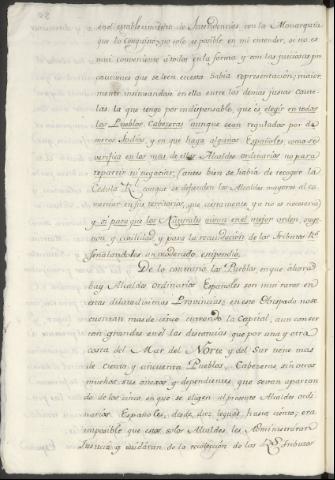 en el establecimiento de Intendencias, con la Monarquia
que lo compuso; no solo es posible en mi entender, si no es
mui conveniente á todos en la forma y con las juiciosas pre
cauciones que se leen en esta sabia representacion; maior
mente insinuandose en ella entre las demas justas caute
las, la que tengo por indispensable, que es elegir en todos
los Pueblos Cabezeras aunque sean regulados por de
meros Indios, y en que haya algunos Españoles como se
verifica en las mas de ellos Alcaldes ordinarios no para
repartir ni negociar, (antes bien se habia de recoger la
Cedula Rl. conque se defienden los Alcaldes mayores al co
merciar en sus territorios, que ciertamente ya no es necesaria)
y si para que los Naturales vivan en el mejor orden, suge
cion y civilidad y para la recaudacion de los Tributos Rs.
señalandoles un moderado emipendio.
De lo contrario las Pueblas en que ahora
hay Alcaldes Ordinarios Españoles son mui raros en
estas dilatadisimas Provincias, en este Obispado no se
cuentan mas de cinco entrando la Capital, aun con ser
tan grandes en el las distancias que por una y otra
costa del Mar del Norte y del Sur tiene mas
de ciento y cincuenta Pueblos Cabezeras, sin otros
muchos sus anexos y dependientes que se ran aparta
do de los cinco, en que se eligen al presente Alcaldes ordi
narios Españoles, desde diez leguas, hasta ciento; era
imposible que estos solos Alcaldes les Administraran
Justicia, y cuidaran de la recoleccion de los Rs. Tributos